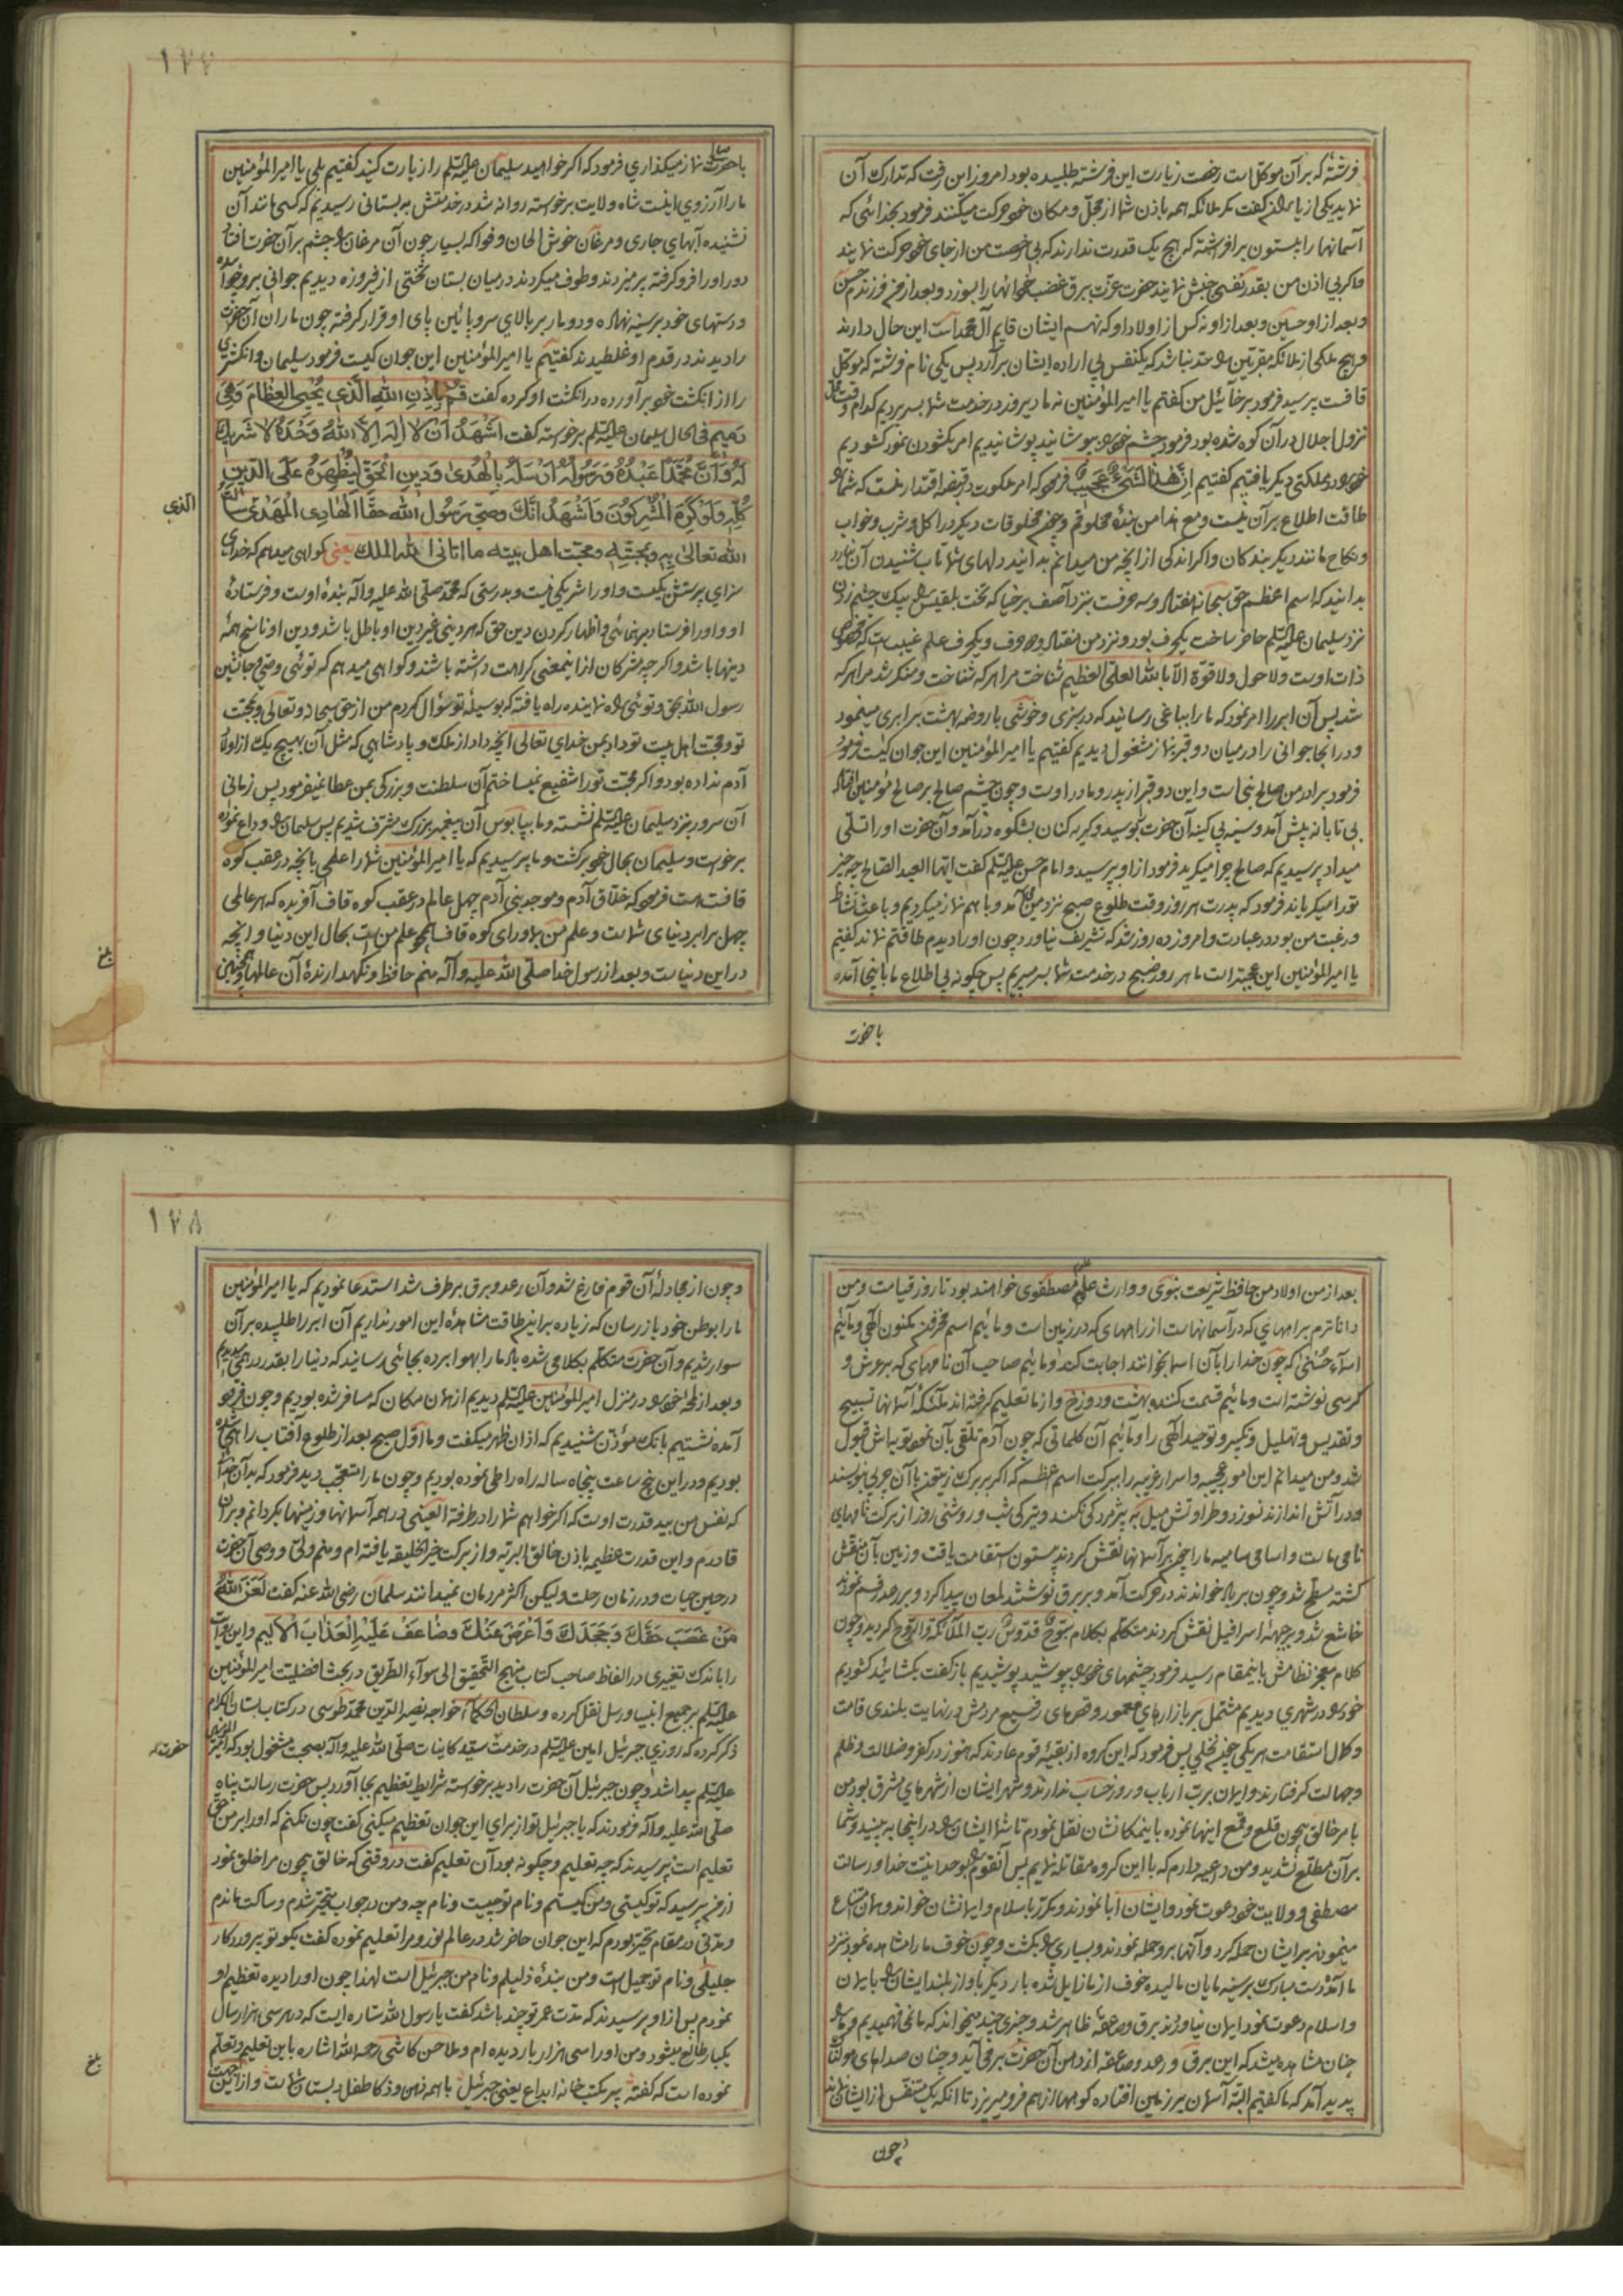 فرشته که برآن موکل است رخصت زیارت این فرشته طلبیده بود امروز این رفت که تدارک آن
نماید یکی از یاران گفت مگر ملائکه همه باذن شما از محل و مکان خود حرکت میکنند فرمود بخدائی که
آسمانها را بیستون برافراشته که هیچ یک قدرت ندارند که بی رخصت من از جای خود حرکت نمایند
و اگر بی اذن من بقدر نفسی جنبش نمایند حضرت عزت ببرق غضب خود آنها را بسوزد و بعد از من فرزندم حسن
و بعد از او حسین و بعد از او نه کس از اولاد او که نهم ایشان قایم آل محمد است این حال دارند
و هیچ ملکی از ملائکه مقربین را حد نباشد که یکنفس بی اراده ایشان برآرد پس یکی نام فرشته که موکل
قافست پرسید فرمود برخائیل من گفتم یا امیرالمؤمنین نه ما دیروز در خدمت شما بسر بردیم کدام وقت
نزول اجلال در آن کوه شده بود فرمود چشم خود را بپوشانید پوشانیدیم امر بگشودن نمود گشودیم
خود را در مملکتی دیگر یافتیم گفتیم اِنَّ هٰذا لَشَیْءٌ عَجیبٌ فرمود که امر ملکوت در قبضه اقتدار منست که شما را
طاقت اطلاع بر آن نیست و مع هذا من بنده مخلوقم و چون مخلوقات دیگر در اکل و شرب و خواب
و نکاح مانند دیگر بندگان و اگر اندکی از آنچه من میدانم بدانید دلهای شما تاب شنیدن آن نیارد
بدانید که اسم اعظم حق سبحانه هفتاد و سه حرفست نزد آصف برخیا که تخت بلقیس را بیک چشم زدن
نزد سلیمان علیه السلم حاضر ساخت یکحرف بود و نزد من هفتاد و دو حرف و یکحرف علم غیبست که مخصوص
ذات اوست ولا حول ولا قوة الا بالله العلی العظیم شناخت مرا هر که شناخت و منکر شد مرا هر که
شد پس آن ابر را امر نمود که ما را بباغی رسانید که در سبزی و خوشی با روضه بهشت برابری مینمود
و در آنجا جوانی را در میان دو قبر بنماز مشغول دیدیم گفتیم یا امیرالمؤمنین این جوان کیست فرمود
فرمود برادر من صالح نبی است و این دو قبر از پدر و مادر اوست و چون چشم صالح بر صالح مؤمنین افتاد
بی تابانه پیش آمد و سینه بی کینه آن حضرت بوسید و گریه کنان بشکوه درآمد و آن حضرت او را تسلی
میداد پرسیدیم که صالح چرا میگرید فرمود از او بپرسید و امام حسن علیه السلم گفت ایها العبد الصالح چه چیز
تو را میگریاند فرمود که پدرت هر روز وقت طلوع صبح نزد من آمد و با هم نماز میکردیم و باعث نشاط
و رغبت من بود در عبادت و امروز ده روز شد که تشریف نیاورد چون او را دیدم طاقتم نماند گفتم
یا امیرالمؤمنین این عجبتر است ما هر روز صبح در خدمت شما بسر میبریم پس چگونه بی اطلاع ما باینجا آمده
باحضرت
١٢٧
باحضرت صالح نماز میگذاری فرمود که اگر خواهید سلیمان علیه السلم را زیارت کنید گفتیم بلی یا امیرالمؤمنین
ما را آرزوی اینست شاه ولایت برخواسته روانه شد در خدمتش به بستانی رسیدیم که کسی مانند آن
نشنیده آبهای جاری و مرغان خوش الحان و فواکه بسیار چون آن مرغان را چشم بر آن حضرت افتاد
دور او را فرو گرفته پر میزدند و طوف میکردند در میان بستان تختی از فیروزه دیدیم جوانی برو خوابیده
و دستهای خود بر سینه نهاده و دو مار بر بالای سر و پائین پای او قرار گرفته چون ماران آن حضرت
را دیدند در قدم او غلطیدند گفتیم یا امیرالمؤمنین این جوان کیست فرمود سلیمان و انگشتری
را از انگشت خود برآورده در انگشت او کرده گفت قُمْ بِاِذْنِ اللهِ الَّذی یُحْیِی العِظامَ وَهِیَ
رَمیمٌ فی الحال سلیمان علیه السلم برخواسته گفت اَشْهَدُ اَنْ لا اِلهَ اِلاَّ اللهُ وَحْدَهُ لا شَریکَ
لَهُ وَاَنَّ مُحَمَّداً عَبْدُهُ وَرَسُولُهُ اَرْسَلَهُ بِالْهُدیٰ وَدینِ الْحَقِّ لِیُظْهِرَهُ عَلَی الدّینِ
کُلِّهِ وَلَوْ کَرِهَ الْمُشْرِکُونَ وَاَشْهَدُ اَنَّکَ وَصِیُّ رَسُولِ اللهِ حقّاً الْهادِی الْمَهْدِیُّ سالت
الذی
الله تعالی بِهِ وبمحبته ومحبت اهل بیته ما اتانی الله الملک یعنی گواهی میدهم که خدای
سزای پرستش یکیست و او را شریکی نیست و بدرستی که محمد صلی الله علیه وآله بنده اوست و فرستاده
او و او را فرستاد برهنمائی و اظهار کردن دین حق که هر دینی غیر دین او باطل باشد و دین او ناسخ همه
دینها باشد و اگر چه مشرکان از اینمعنی کراهت داشته باشند و گواهی میدهم که توئی وصی و جانشین
رسول الله بحق و توئی راه نماینده راه یافته که بوسیله تو سؤال کردم من از حق سبحانه و تعالی و بمحبت
تو و محبت اهل بیت تو داد بمن خدای تعالی آنچه داد از ملک و پادشاهی که مثل آن بهیچ یک از اولاد
آدم نداده بود و اگر محبت تو را شفیع نمیساختم آن سلطنت و بزرگی بمن عطا نمیفرمود پس زمانی
آن سرور نزد سلیمان علیه السلم نشسته و ما بپابوس آن پیغمبر بزرگ مشرف شدیم پس سلیمان را وداع نموده
برخواست و سلیمان بحال خود برگشت و ما پرسیدیم که یا امیرالمؤمنین شما را علمی بآنچه در عقب کوه
قافست هست فرمود که خلاق آدم و موجد بنی آدم چهل عالم در عقب کوه قاف آفریده که هر عالمی
چهل برابر دنیای شماست و علم من بماورای کوه قاف همچو علم من است بحال این دنیا و آنچه
در این دنیاست و بعد از رسول خدا صلی الله علیه وآله منم حافظ و نگهدارنده آن عالمها و همچنین
بلغ
بعد از من اولاد من حافظ شریعت نبوی و وارث علم مصطفوی خواهند بود تا روز قیامت و من
داناترم براههای که در آسمانهاست از راههای که در زمین است و مائیم اسم مخزون مکنون الهی و مائیم
اسماء حسنی که چون خدا را بآن اسما بخوانند اجابت کند و مائیم صاحب آن نامهای که بر عرش و
کرسی نوشته است و مائیم قسمت کننده بهشت و دوزخ و از ما تعلیم گرفته اند ملئکه آسمانها تسبیح
و تقدیس و تهلیل و تکبیر و توحید الهی را و مائیم آن کلماتی که چون آدم تلقی بآن نمود توبه اش قبول
شد و من میدانم این امور عجیبه و اسرار غریبه را ببرکت اسم اعظم که اگر بر برگ زیتون با آن چوبی نویسند
و در آتش اندازند نسوزد و طراوتش میل به پژمردگی نکند و تیرگی شب و روشنی روز از برکت نامهای
نامی ماست و اسامی سامیه ما را چون بر آسمانها نقش کردند بیستون استقامت یافت و زمین بآن منقش
گشته مسطح شد و چون بر باد خواندند در حرکت آمد و بر برق نوشتند لمعان پیدا کرد و بر رعد رقم نمودند
خاشع شد و بر جبهه اسرافیل نقش کردند متکلم بکلام سُبّوح قدّوس ربّ الملآئکة والرّوح گردید و چون
کلام معجز نظامش باینمقام رسید فرمود چشمهای خود را بپوشید پوشیدیم باز گفت بگشائید گشودیم
خود را در شهری دیدیم مشتمل بر بازارهای معمور و قصرهای رفیع مردمش در نهایت بلندی قامت
و کمال استقامت هر یکی چون نخلی پس فرمود که این گروه از بقیه قوم عادند که هنوز در کفر و ضلالت و ظلم
و جهالت گرفتارند و ایمان برب ارباب و روز حساب ندارند و شهر ایشان از شهرهای مشرق بود من
بامر خالق بیچون قلع و قمع اینها نموده باینمکانشان نقل نمودم تا شما ایشان را در اینجا به بینید و شما
بر آن مطلع نشدید و من داعیه دارم که با این گروه مقاتله نمایم پس آنقوم را بوحدانیت خدا و رسالت
مصطفی و ولایت خود دعوت نمود و ایشان ابا نمودند و مکرر باسلام و ایمانشان خواند و همان امتناع
مینمودند بر ایشان حمله کرد و آنها برو حمله نمودند و بسیاری را بکشت و چون خوف ما را مشاهده نمود نزد
ما آمد و دست مبارک بر سینه مایان مالیده خوف از ما زایل شده بار دیگر باواز بلند ایشان را بایمان
و اسلام دعوت نمود ایمان نیاوردند برق و صاعقه ظاهر شد و چیزی چند میخواند که ما نمی فهمیدیم و ما را
چنان مشاهده میشد که این برق و رعد و صاعقه از دهن آن حضرت بر می آید و چنان صداهای هولناک
پدید آمد که ما گفتیم البته آسمان بر زمین افتاده کوهها از هم فرو میریزد تا آنکه یک متنفس از ایشان نماند
و چون
١٢٨
و چون از مجادله آن قوم فارغ شد و آن رعد و برق برطرف شد استدعا نمودیم که یا امیرالمؤمنین
ما را بوطن خود باز رسان که زیاده بر این طاقت مشاهده این امور نداریم آن ابر را طلبیده بر آن
سوار شدیم و آن حضرت متکلم بکلامی شده باد ما را بهوا برده بجائی رسانید که دنیا را بقدر درهمی دیدیم
و بعد از لمحه خود را در منزل امیرالمؤمنین علیه السلم دیدیم از همان مکان که مسافر شده بودیم و چون فرود
آمده نشستیم بانگ مؤذن شنیدیم که اذان ظهر میگفت و ما اول صبح بعد از طلوع آفتاب راهی شده
بودیم و در این پنج ساعت پنجاه ساله راه را طی نموده بودیم و چون ما را متعجب دید فرمود که بدان خدائی
که نفس من بید قدرت اوست که اگر خواهم شما را در طرفة العینی در همه آسمانها و زمینها بگردانم و بر آن
قادرم و این قدرت عظیم باذن خالق البریه و از برکت خیر الخلیقه یافته ام و منم ولی و وصی آن حضرت
در حین حیات و در زمان رحلت ولیکن اکثر مردمان نمیدانند سلمان رضی الله عنه گفت لَعَنَ اللهُ
مَنْ غَصَبَ حَقَّکَ وَجَحَدَکَ وَاَعْرَضَ عَنْکَ وضاعَفْ عَلَیْهِ الْعَذابَ الْاَلیم و این روایت
را باندک تغییری در الفاظ صاحب کتاب منهج التحقیق الی سوآء الطریق در بحث افضلیت امیرالمؤمنین
علیه السلم بر جمیع انبیا و رسل نقل کرده و سلطان الحکماء خواجه نصیرالدین محمد طوسی در کتاب بستان الکرام
ذکر کرده که روزی جبرئیل امین علیه السلم در خدمت سید کاینات صلی الله علیه وآله بصحبت مشغول بود که امیرالمؤمنین
علیه السلم پیدا شد و چون جبرئیل آن حضرت را دید برخواسته شرایط تعظیم بجا آورد پس حضرت رسالت پناه
صلی الله علیه وآله فرمودند که یا جبرئیل تو از برای این جوان تعظیم میکنی گفت چون نکنم که او را بر من حق
تعلیم است پرسیدند که چه تعلیم و چگونه بود آن تعلیم گفت در وقتی که خالق بیچون مرا خلق نمود
از من پرسید که تو کیستی و من کیستم و نام تو چیست و نام من چه و من در جواب متحیر شدم و ساکت ماندم
و مدتی در مقام تحیر بودم که این جوان حاضر شد در عالم نور و مرا تعلیم نموده گفت بگو تو پروردگار
جلیلی و نام تو جمیل است و من بنده ذلیلم و نام من جبرئیل است لهذا چون او را دیده تعظیم او
نمودم پس از او پرسیدند که مدت عمر تو چند باشد گفت یا رسول الله ستاره ایست که در هر سی هزار سال
یکبار طالع میشود و من او را سی هزار بار دیده ام و ملا حسن کاشی رحمه الله اشاره باین تعلیم و تعلم
نموده است که گفته پیر مکتب خانه ابداع یعنی جبرئیل با همه ذهن و ذکا طفل دبستان شماست و از این جهت
بلغ